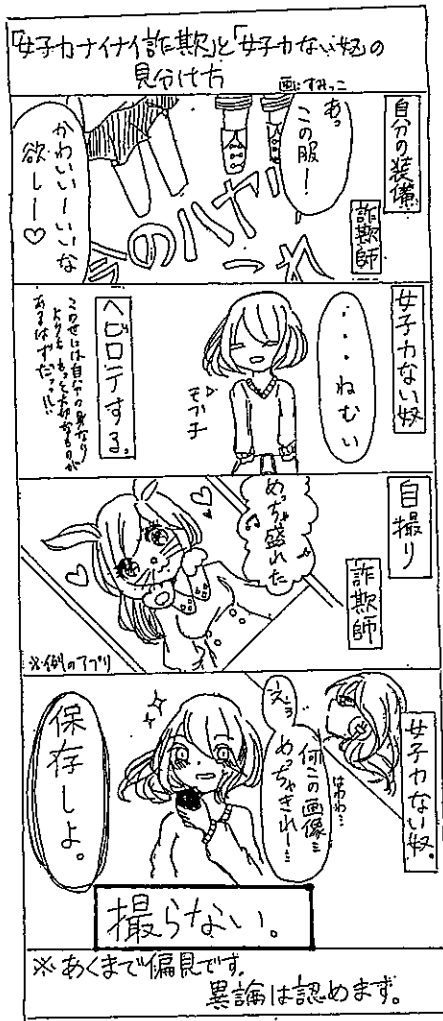 「女子力ナイナイ詐欺」と「女子力ない奴」の
見分け方
画:すみっこ
自分の装備
詐欺師
あっ
この服ー!
かわいいーいいな
欲しー♡
女子力ない奴
・・・ねむい
モブ子
ヘビロテする。
この世には自分の身なり
よりも もっと大切なものが
あるはずだっっ!!
自撮り
詐欺師
めっちゃ盛れた♪
※例のアプリ
女子力ない奴。
はわわ…
えっ
何この画像…
めっちゃきれー…
保存しよ。
撮らない。
※あくまで偏見です。
異論は認めます。